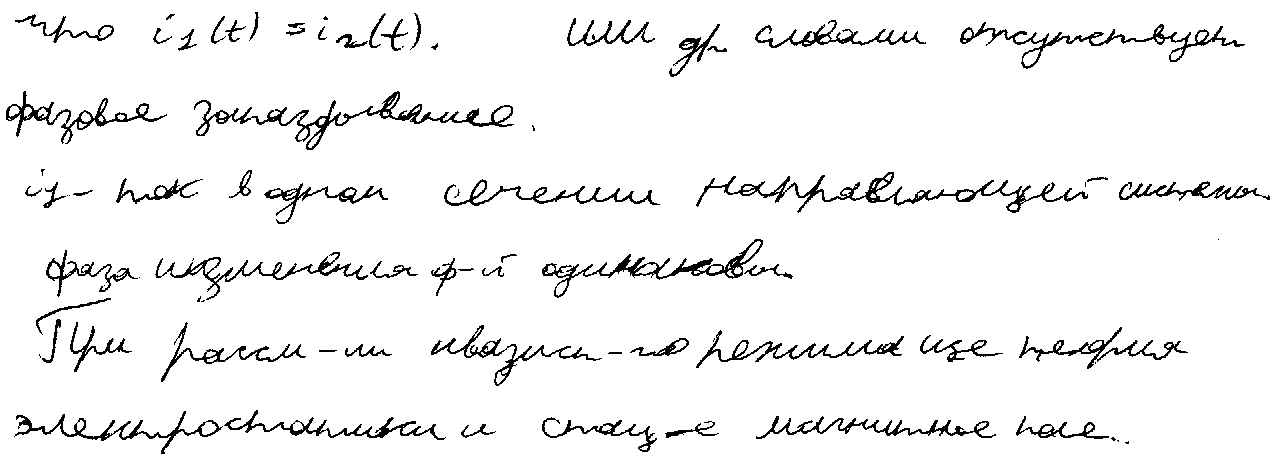 что i₁(t) = i₂(t). Или др. словами отсутствует
фазовое запаздывание.
i₁ – ток в одном сечении направляющей системы
фаза изменения ф-й одинаковы.
При рассм-ии квазист-го режима исп теория
электростатики и стац-е магнитное поле..